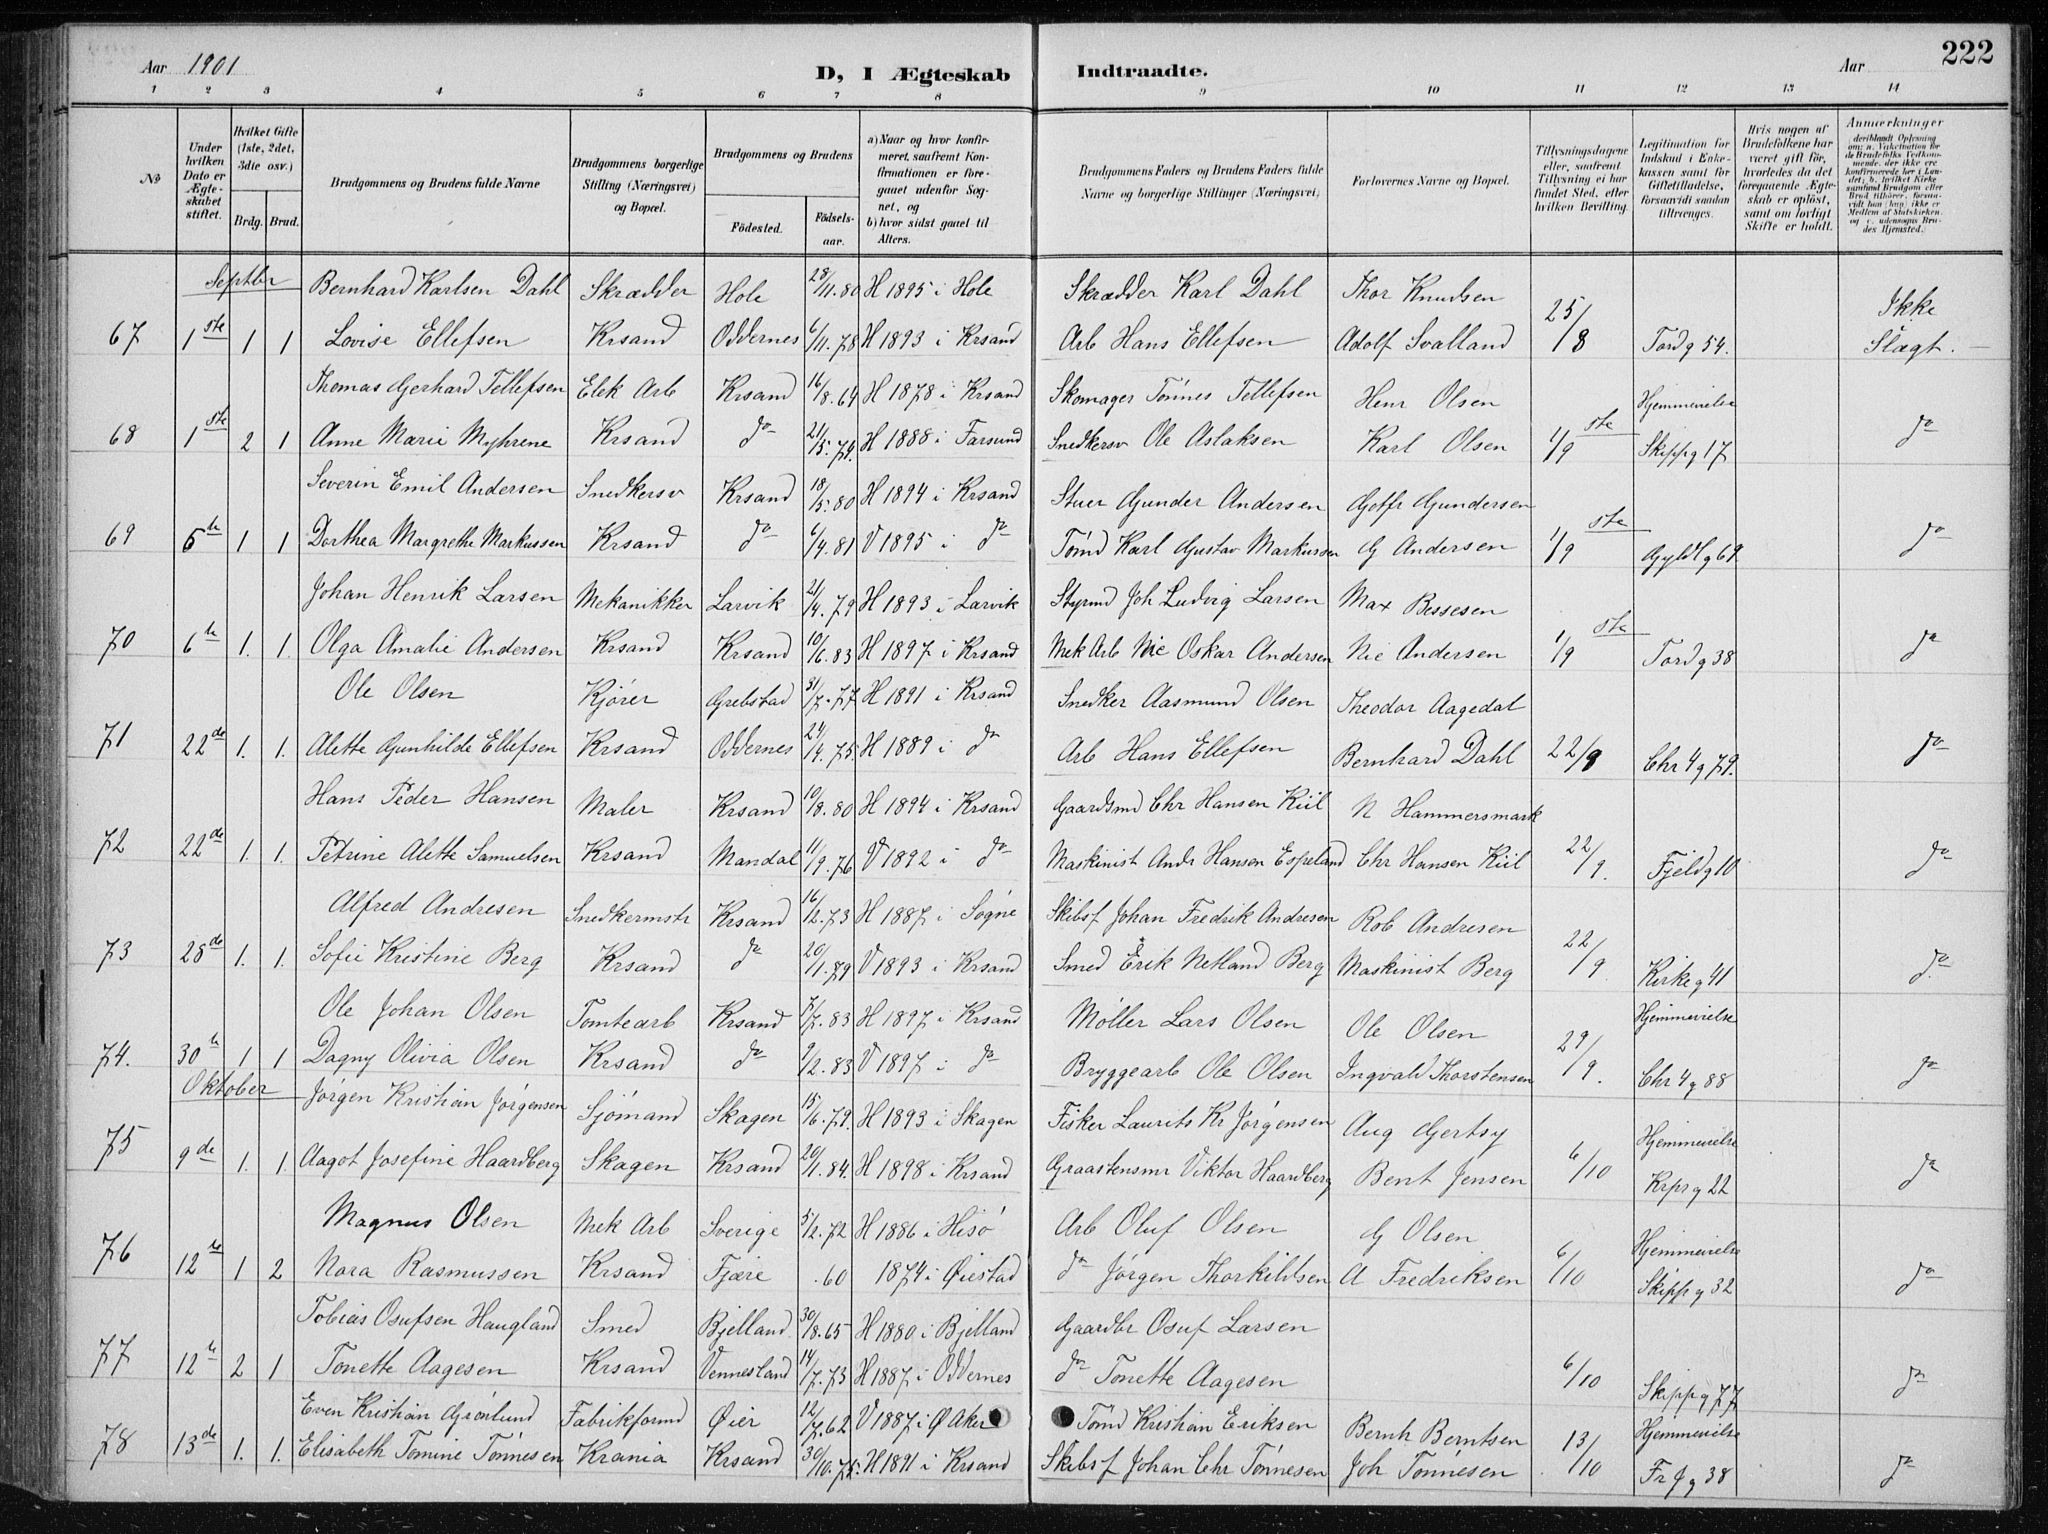 Aar 1901
D, I Ægteskab Indtraadte.
Aar
222
1 2 3 4 5 6 7 8 9 10 11 12 13 14
No
Under hvilken Dato er Ægteskabet stiftet.
Hvilket Gifte (1ste, 2det, 3die osv.)
Brdg. Brud.
Brudgommens og Brudens fulde Navne
Brudgommens borgerlige Stilling (Næringsvei) og Bopæl.
Brudgommens og Brudens
Fødested. Fødselsaar.
a) Naar og hvor konfirmeret, saafremt Konfirmationen er foregaaet udenfor Sognet, og
b) hvor sidst gaaet til Alters.
Brudgommens Faders og Brudens Faders fulde Navne og borgerlige Stillinger (Næringsvei)
Forlovernes Navne og Bopæl.
Tillysningsdagene eller, saafremt Tillysning ei har fundet Sted, efter hvilken Bevilling.
Legitimation for Indskud i Enkekassen samt for Giftetilladelse, forsaavidt saadan tiltrænges.
Hvis nogen af Brudefolkene har været gift før, hvorledes da det foregaaende Ægteskab er opløst, samt om lovligt Skifte er holdt.
Anmærkninger
deriblandt Oplysning om: a. Vakcination for de Brudefolks Vedkommende, der ikke ere konfirmerede her i Landet; b. hvilket Kirkesamfund Brudgom eller Brud tilhører, forsaavidt han (hun) ikke er Medlem af Statskirken og c. udensogns Brudes Hjemsted.
Septbr Bernhard Karlsen Dahl Skrædder Hole 28/11.80 H 1895 i Hole Skrædder Karl Dahl Thor Knudsen 25/8 Ikke
67 1ste 1 1 Lovise Ellefsen Krsand Oddernes 6/11.78 H 1893 i Krsand Arb Hans Ellefsen Adolf Svalland Tordg 54. Slægt.
Thomas Gerhard Tellefsen Elek Arb Krsand 16/8.64 H 1878 i Krsand Skomager Tønnes Tellefsen Henr Olsen Hjemmevielse
68 1ste 2 1 Anne Marie Myhrene Krsand do 21/5.74. H 1888 i Farsund Snedkersv Ole Aslaksen Karl Olsen 1/9 ste Skippg 17 do
Severin Emil Andersen Snedkersv Krsand 18/5.80 H 1894 i Krsand Stuer Gunder Andersen Gotfr Gundersen
69 5te 1 1 Dorthea Margrethe Markussen Krsand do 6/4.81 V 1895 i do Tømd Karl Gustav Markussen G Andersen 1/9 ste Gyldlg 69. do
Johan Henrik Larsen Mekanikker Larvik 21/4.79 H 1893 i Larvik Styrmd Joh Ludvig Larsen Max Bessesen
70 6te 1. 1. Olga Amalie Andersen Krsand Krsand 10/6.83 H 1897 i Krsand Mek Arb Nic Oskar Andersen Nic Andersen 1/9 ste Tordg 38 do
Ole Olsen Kjører Grebstad 31/7.77 H 1891 i Krsand Snedker Aasmund Olsen Theodor Aagedal
71 22de 1. 1. Alette Gunhilde Ellefsen Krsand Oddernes 24/4.75. H 1889 i do Arb Hans Ellefsen Bernhard Dahl 22/9 Chr 4g 79. do
Hans Peder Hansen Maler Krsand 10/8.80 H 1894 i Krsand Gaardsmd Chr Hansen Kiil N Hammersmark
72 22de 1. 1. Petrine Alette Samuelsen Krsand Mandal 11/9.76 V 1892 i do Maskinist Andr Hansen Espeland Chr Hansen Kiil 22/9. Fjeldg 10 do
Alfred Andresen Snedkermstr Krsand 16/12.73 H 1887 i Søgne Skibsf Johan Fredrik Andresen Rob Andresen
73 28de 1. 1. Sofie Kristine Berg Krsand do 20/1.79 V 1893 i Krsand Smed Erik Netland Berg Maskinist Berg 22/9. Kirkeg 41 do
Ole Johan Olsen Tomtearb Krsand 7/7.83 H 1897 i Krsand Møller Lars Olsen Ole Olsen Hjemmevielse
74. 30te 1 1 Dagny Olivia Olsen Krsand do 9/2.83 V 1897 i do Bryggearb Ole Olsen Ingvald Thorstensen 29/9. Chr 4g 88 do
Oktober Jørgen Kristian Jørgensen Sjømand Skagen 15/6.79. H 1893 i Skagen Fisker Laurits Kr Jørgensen Aug Gertsy Hjemmevielse
75 9de 1. 1. Aagot Josefine Haardberg Skagen Krsand 20/1.84. H 1898 i Krsand Graastensmr Viktor Haardberg Bent Jensen 6/10 Krprg 22 do
Magnus Olsen Mek Arb Sverige 5/2.72 H 1886 i Hisø Arb Oluf Olsen G Olsen Hjemmevielse
76 12te 1 2 Nora Rasmussen Krsand Fjære .60 1874 i Øiestad do Jørgen Thorkildsen A Fredriksen 6/10 Skippg 32 do
Tobias Osufsen Haugland Smed Bjelland 30/8.65 H 1880 i Bjelland Gaardbr Osuf Larsen
77 12te 2 1 Tonette Aagesen Krsand Vennesland 14/7.73 H 1887 i Oddernes do Tonette Aagesen 6/10 Skippg 77 do
Even Kristian Grønlund Fabrikformd Øier 12/7.62 V 1887 i Ø Aker Tømd Kristian Eriksen Bernh Berntsen Hjemmevielse
78 13de 1. 1. Elisabeth Tomine Tønnesen Krania Krsand 30/10.75. H 1891 i Krsand Skibsf Johan Chr Tønnesen Joh Tønnesen 13/10 Fr J g 38 do